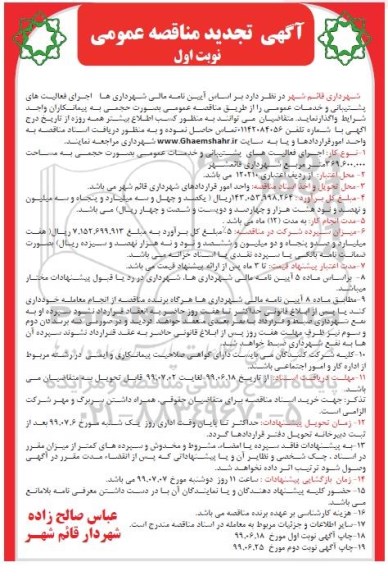 آگهی تجدید مناقصه عمومی
نوبت اول
شهرداری قائم شهر در نظر دارد بر اساس آیین نامه مالی شهرداری ها اجرای فعالیت های
پشتیبانی و خدمات عمومی را از طریق مناقصه عمومی بصورت حجمی به پیمانکاران واجد
شرایط واگذار نماید. متقاضیان می توانند به منظور کسب اطلاع بیشتر همه روزه از تاریخ درج
آگهی با شماره تلفن ۰۱۱۴۲۰۸۴۰۵۶ تماس حاصل نموده و به منظور دریافت اسناد مناقصه به
واحد امور قراردادها و یا به سایت www.Ghaemshahr.ir شهرداری مراجعه نمایند.
۱- نوع کار: اجرای فعالیت های پشتیبانی و خدمات عمومی بصورت حجمی به مساحت
۳۶۹.۶۰۰.۰۰۰ متر مربع شهرداری قائم شهر
۲- محل اعتبار: از ردیف اعتباری ۱۲۰۲۱۰ می باشد.
۳- محل تحویل و اخذ اسناد مناقصه: واحد امور قراردادهای شهرداری قائم شهر می باشد.
۴- مبلغ کل برآورد: ۱۴۳.۰۵۳.۹۹۸.۲۶۴ ریال (یکصد و چهل و سه میلیارد و پنجاه و سه میلیون
و نهصد و نود و هشت هزار و دویست و شصت و چهار ریال) می باشد.
۵- مدت انجام کار: به مدت (۱۲) ماه می باشد.
۶- میزان سپرده شرکت در مناقصه: ۵٪ مبلغ کل برآورد به مبلغ ۷.۱۵۲.۶۹۹.۹۱۳ ریال (هفت
میلیارد و صد و پنجاه و دو میلیون و ششصد و نود و نه هزار نهصد و سیزده ریال) بصورت
ضمانت نامه بانکی یا سپرده نقدی یا اسناد خزانه می باشد.
۷- مدت اعتبار پیشنهاد قیمت: تا ۳ ماه پس از ارائه پیشنهاد قیمت می باشد.
۸- براساس ماده ۵ آیین نامه مالی شهرداری ها، شهرداری در رد یا قبول پیشنهادات مختار
می باشد.
۹- مطابق ماده ۸ آیین نامه مالی شهرداری ها هرگاه برنده مناقصه از انجام معامله خودداری
کند یا پس از ابلاغ قانونی حداکثر تا هفت روز حاضر به انعقاد قرارداد نشود سپرده او به
نفع شهرداری ضبط و قرارداد با نفر بعدی منعقد خواهد گردید و در صورتی که برندگان دوم
و سوم نیز ظرف مهلت هفت روز پس از ابلاغ قانونی حاضر به عقد قرارداد نشوند سپرده آن
ها به نفع شهرداری ضبط خواهد شد.
۱۰- کلیه شرکت کنندگان می بایست دارای گواهی صلاحیت پیمانکاری و ایمنی در رشته مربوط
از اداره کار و امور اجتماعی باشند.
۱۱- مهلت دریافت اسناد: از تاریخ ۹۹.۰۶.۱۸ لغایت ۹۹.۰۷.۰۳ قابل تحویل به متقاضیان می
باشد.
تذکر: جهت خرید اسناد مناقصه برای متقاضیان حقوقی، همراه داشتن سربرگ و مهر شرکت
الزامی است.
۱۲- زمان تحویل پیشنهادات: حداکثر تا پایان وقت اداری روز یک شنبه مورخ ۹۹.۰۷.۶ بعد از
ثبت دبیرخانه تحویل دفتر قراردادها گردد.
۱۳- به پیشنهادات فاقد سپرده یا امضاء، مشروط و مخدوش و سپرده های کمتر از میزان مقرر
در اسناد، چک شخصی و نظایر آن و یا پیشنهاداتی که پس از انقضاء مدت مقرر در آگهی
وصول شود ترتیب اثر داده نخواهد شد.
۱۴- زمان بازگشایی پیشنهادات: ساعت ۱۱ روز دوشنبه مورخ ۹۹.۰۷.۰۷ می باشد.
۱۵- حضور کلیه پیشنهاد دهندگان و یا نمایندگان آن با در دست داشتن معرفی نامه بلامانع
می باشد.
۱۶- هزینه کارشناسی بر عهده برنده مناقصه می باشد.
۱۷- سایر اطلاعات و جزئیات مربوط به معامله در اسناد مناقصه مندرج است.
۱۸- چاپ آگهی نوبت اول مورخ ۹۹.۰۶.۱۸
۱۹- چاپ آگهی نوبت دوم مورخ ۹۹.۰۶.۲۵
عباس صالح زاده
شهردار قائم شهر
۰۲۱-۸۸۳۴۹۶۷۰-۵